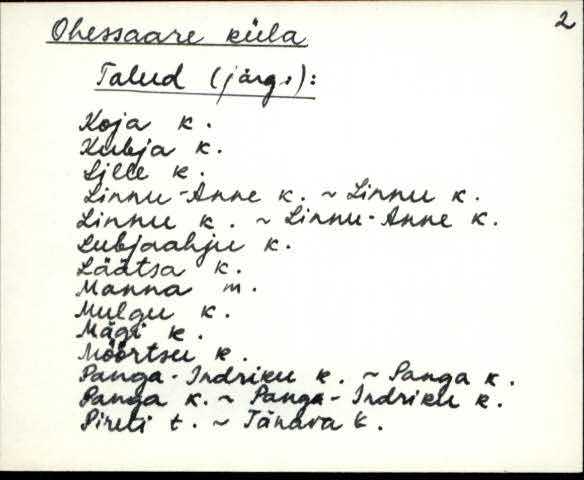 2
Ohessaare küla
Talud (järg.):
Koja k.
Kubja k.
Lille k.
Linnu-Anne k. ~ Linnu k.
Linnu k. ~ Linnu-Anne k.
Lubjaahju k.
Läätsa k.
Manna m.
Mulgu k.
Mägi k.
Möörtsu k.
Panga-Indriku k. ~ Panga k.
Panga k. ~ Panga-Indriku k.
t. ~ Tänava k.